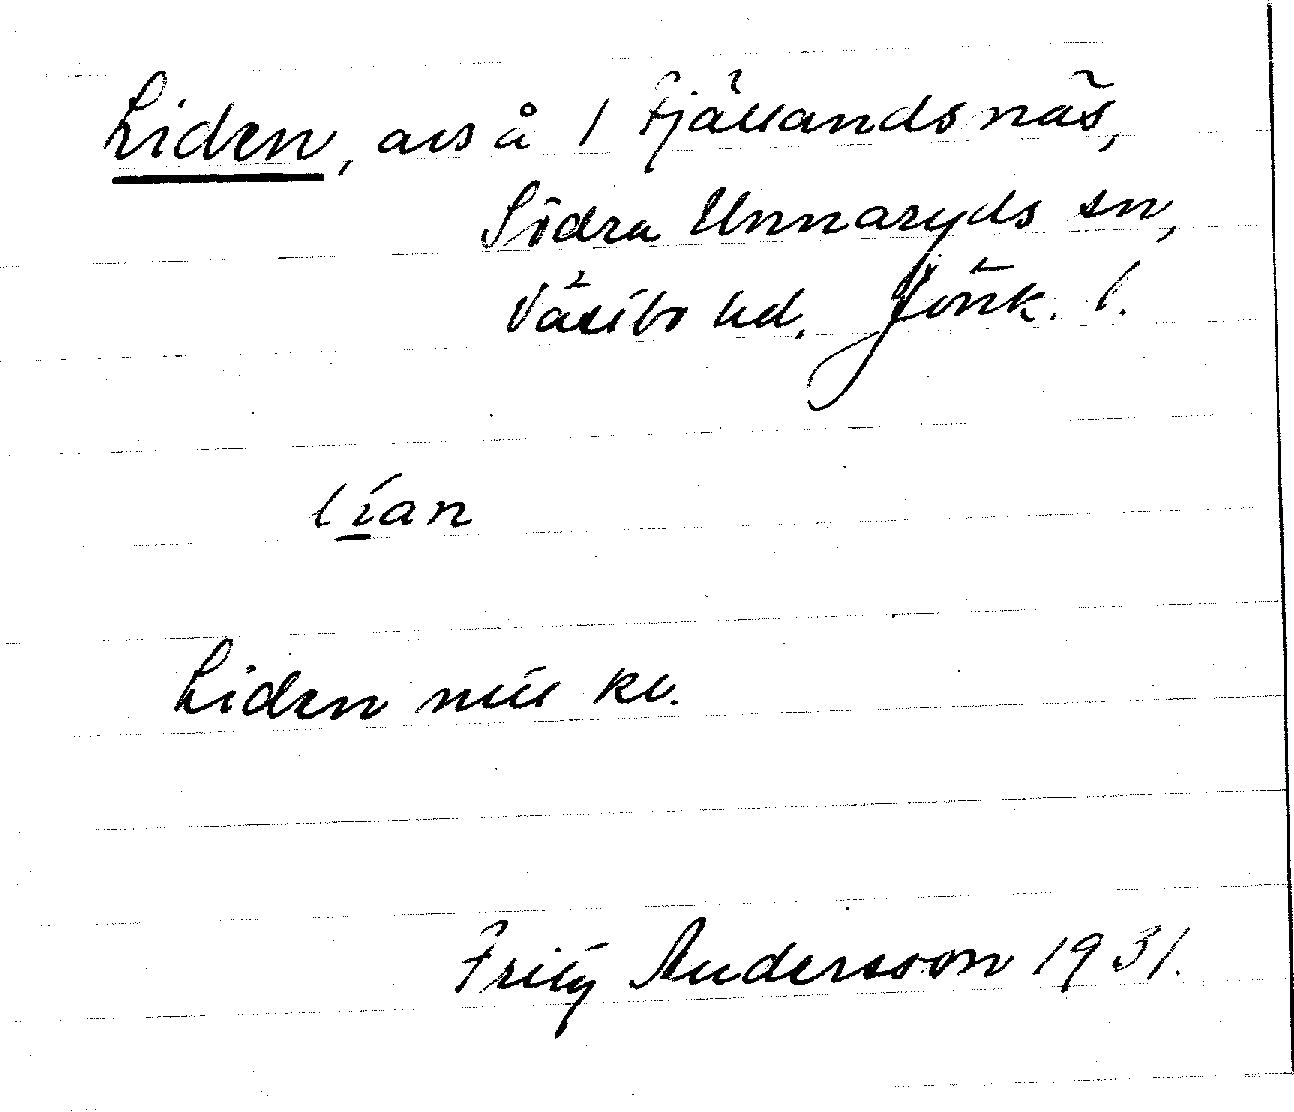 Liden, avs å 1 Fjällandsnäs,
Södra Unnaryds sn,
Västbo hd. Jönk. l.
lían
Liden mtl kv.
Fritz Andersson 1931.